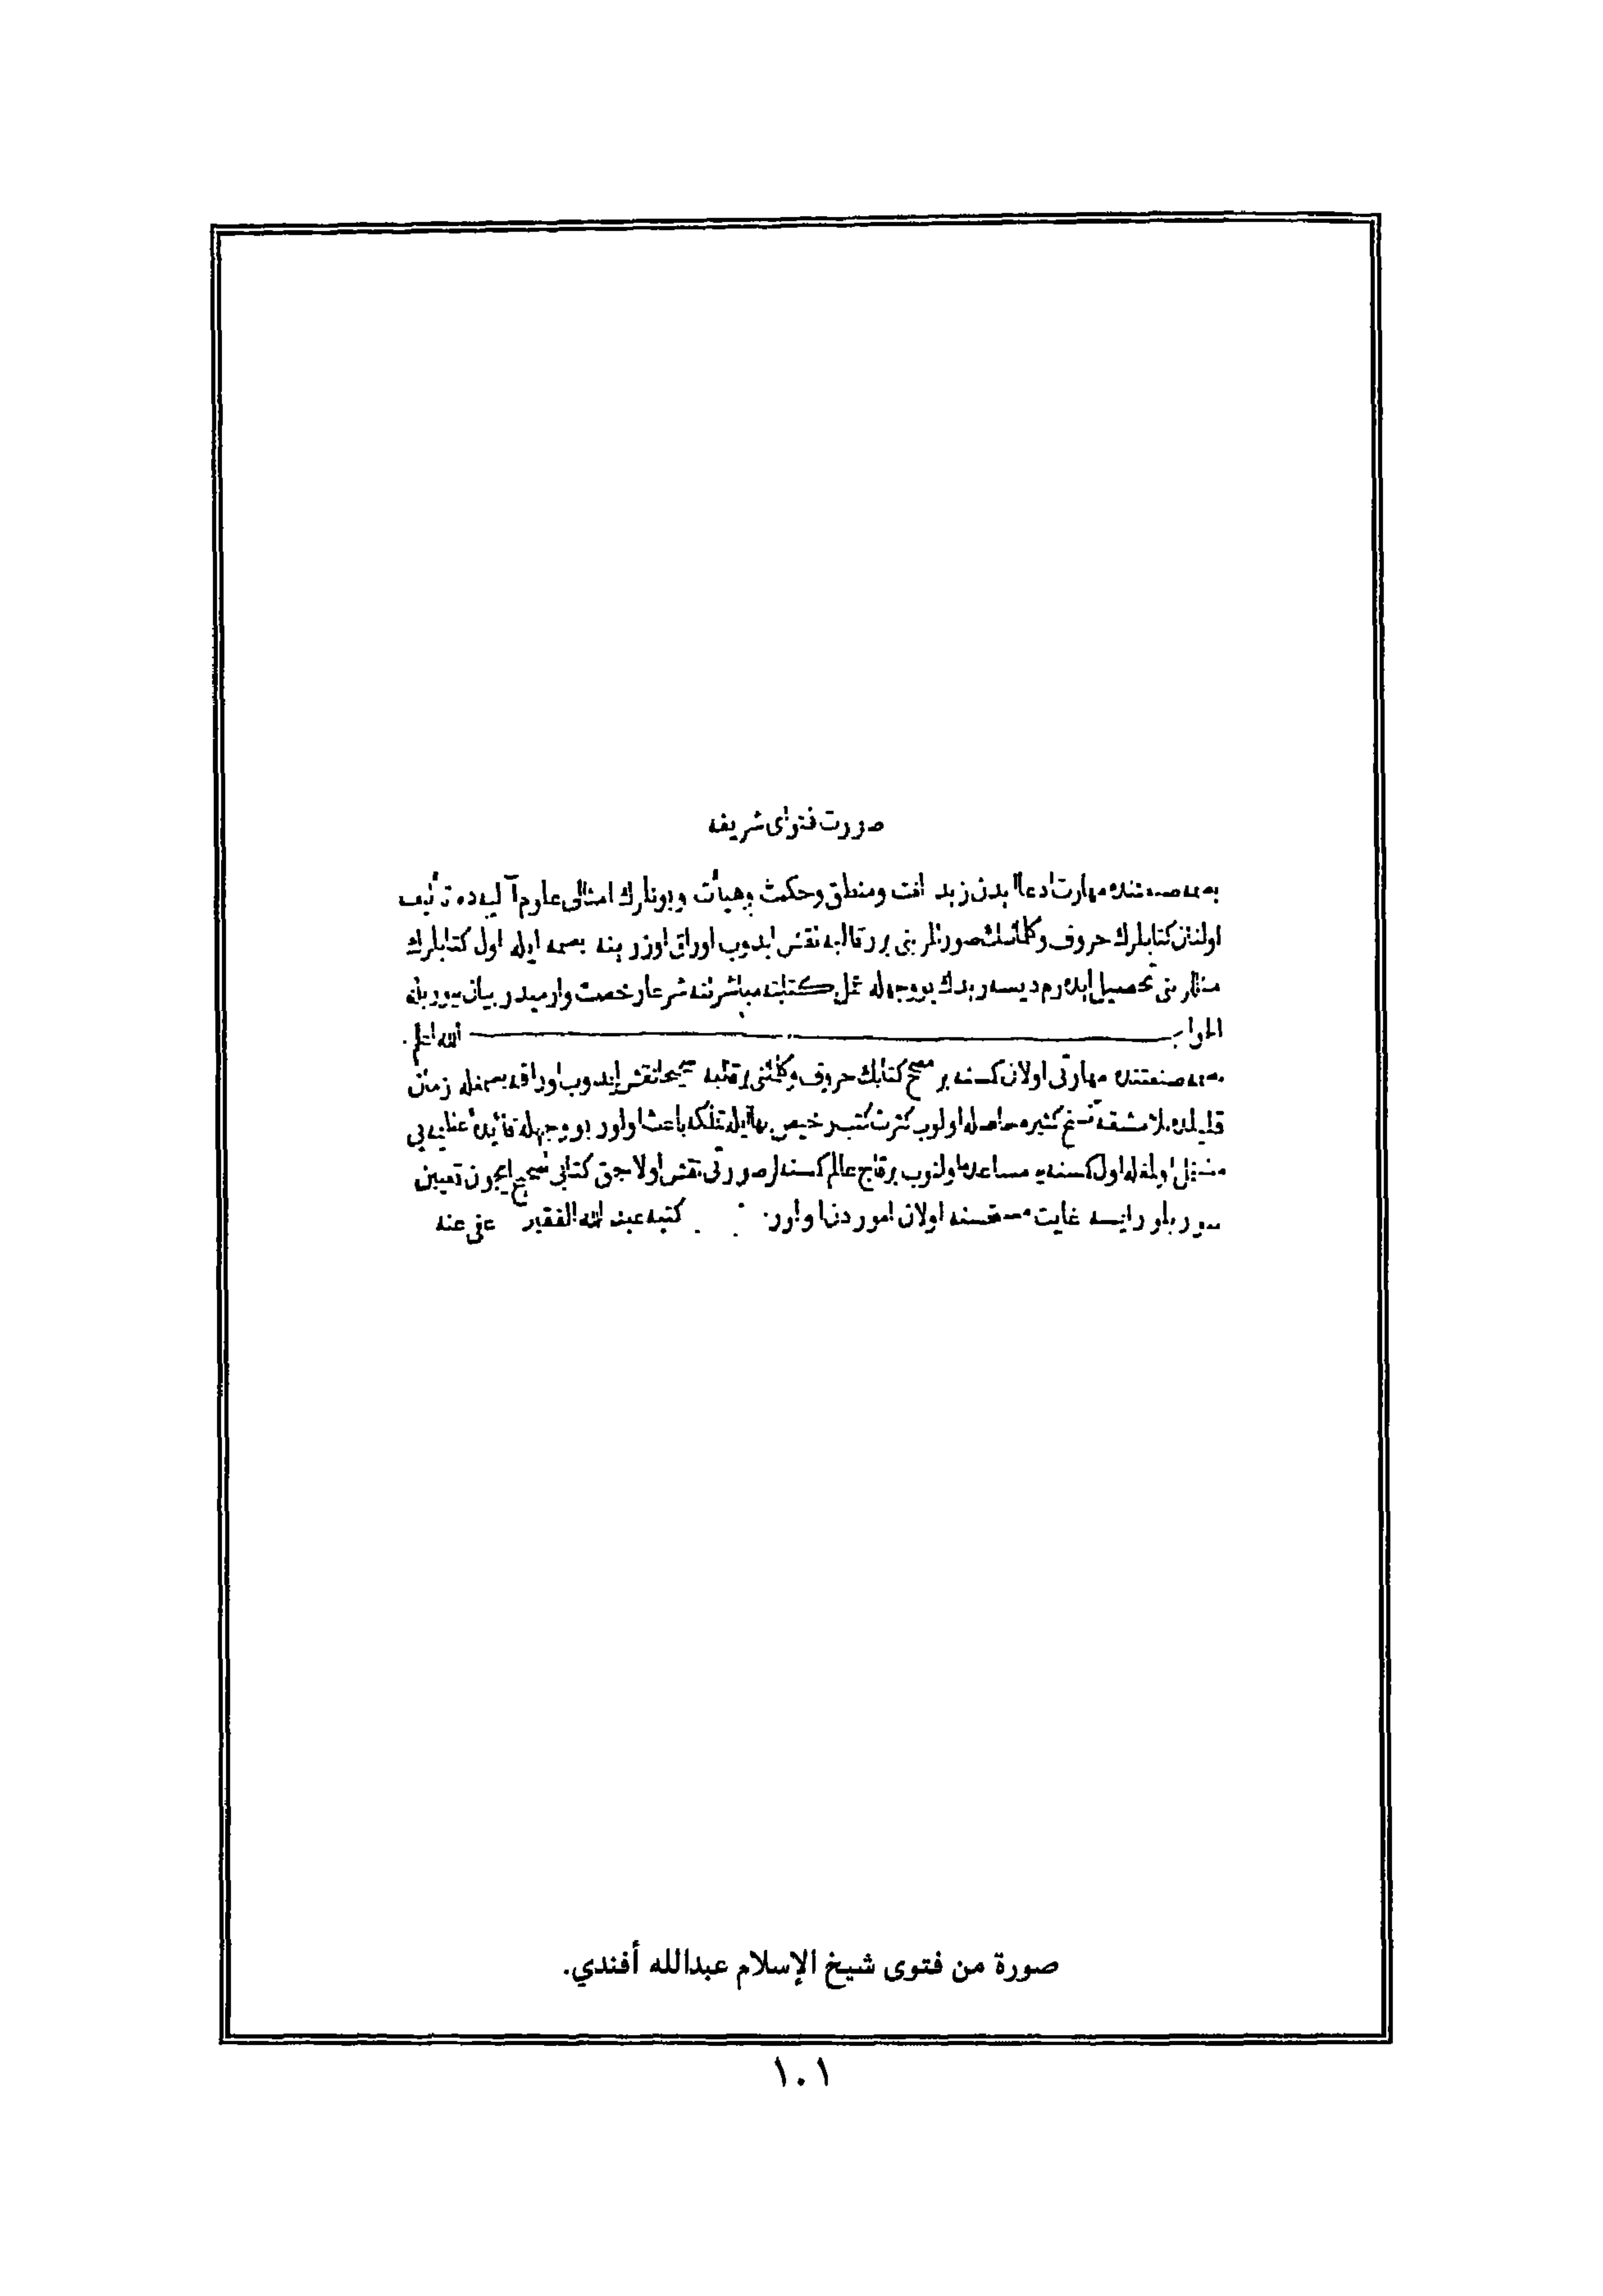 صورت فتواى شريفه
بصمه صنعتنده مهارت ادعا ايدن زيد لغت ومنطق وحكمت وهيأت وبونلرك امثالى علوم آليه ده تأليف
اولنان كتابلرك حروف وكلماتنك صورتلرينى برر قالبه نقش ايدوب اوراق اوزرينه بصمه ايله اول كتابلرك
مثللرينى تحصيل ايدرم ديسه زيدك بو وجهله عمل كتابته مباشرتنه شرعا رخصت وارميدر بيان بيوريله
الجواب الله اعلم
بصمه صنعتنده مهارتى اولان كسنه بر مصحح كتابك حروف وكلماتنى بر قالبه صحيحا نقش ايدوب اوراقه بصمغله زمان
قليلده بلا مشقه نسخ كثيره حاصله اولوب كثرت كتب رخيص بها ايله تملكه باعث اولور بو وجهله فائدهٔ عظيمه يى
مشتمل اولمغله اول كسنه يه مساعده اولنوب برقاج عالم كسنه لر صورتى نقش اولاجق كتابى تصحيح ايچون تعيين
بيوريلور ايسه غايت مستحسنه اولان اموردن اولور. كتبه عبد الله الفقير عفى عنه
صورة من فتوى شيخ الإسلام عبدالله أفندي.
١٠١